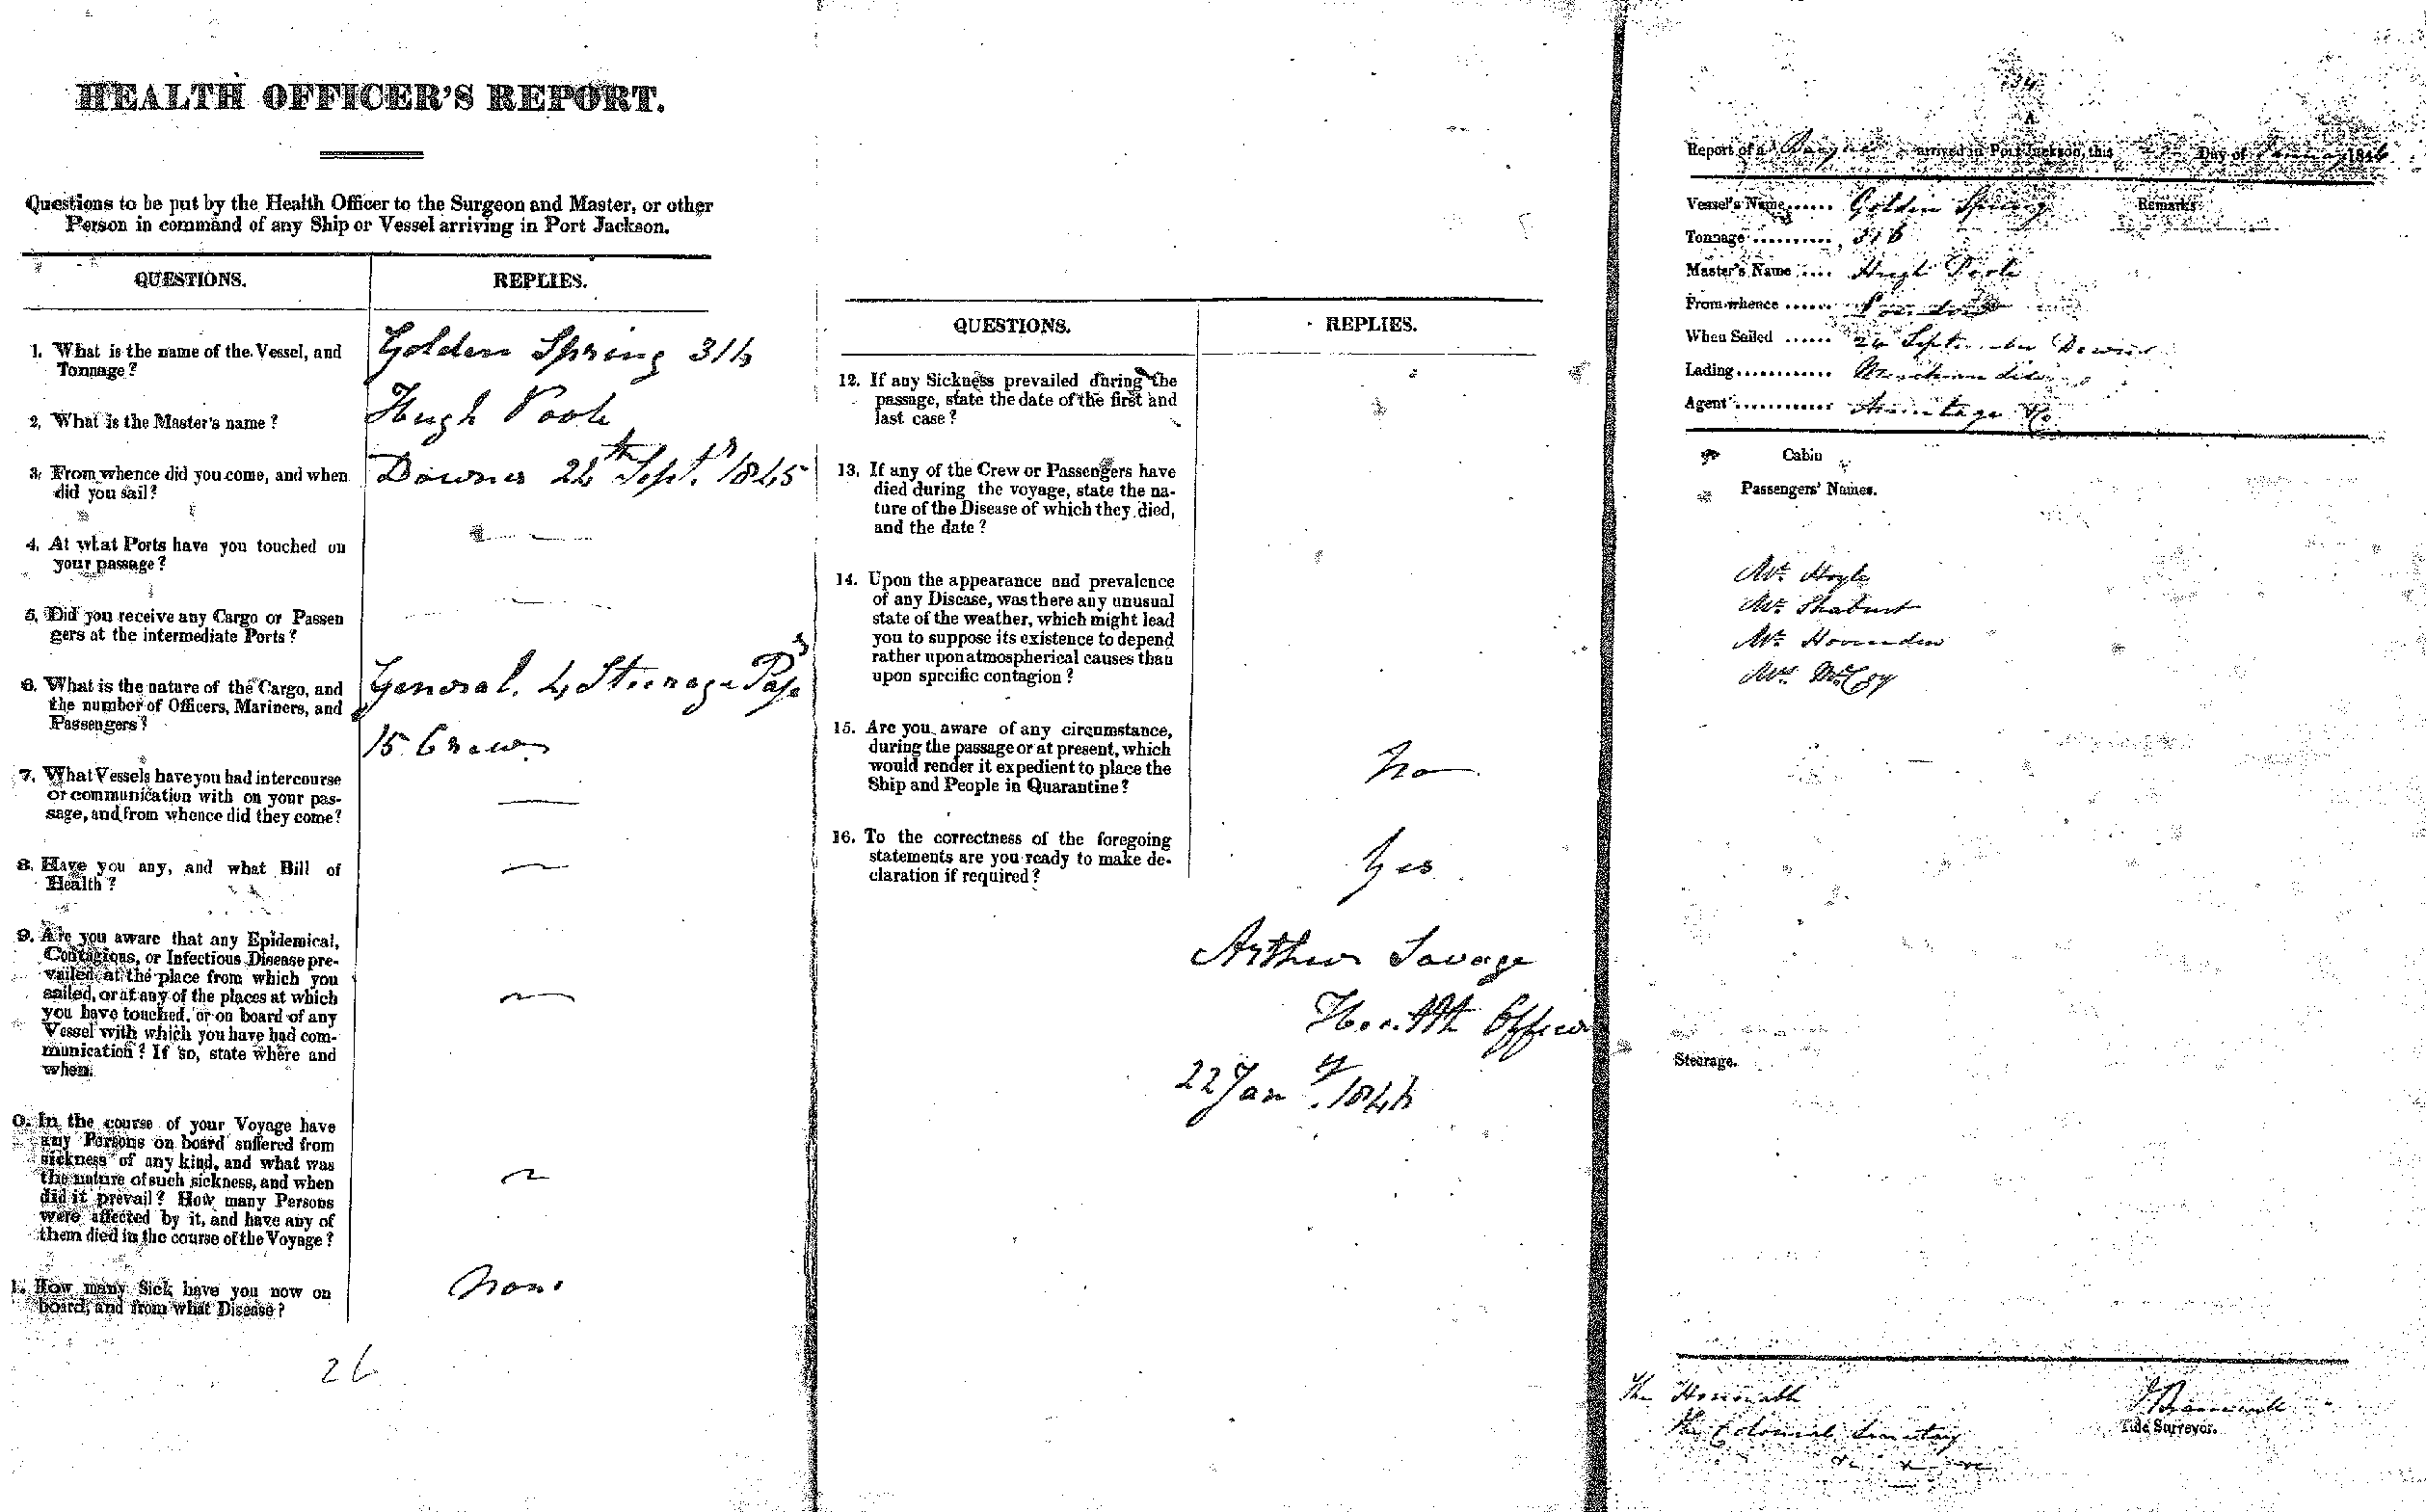 HEALTH OFFICER'S REPORT.
Questions to be put by the Health Officer to the Surgeon and Master, or other
Person in command of any Ship or Vessel arriving in Port Jackson.
QUESTIONS. REPLIES.
1. What is the name of the Vessel, and
Tonnage?
Golden Spring 316
2. What is the Master's name?
Hugh Poole
3. From whence did you come, and when
did you sail?
Downs Sept.r 1845
4. At what Ports have you touched on
your passage?
5. Did you receive any Cargo or Passen
gers at the intermediate Ports?
6. What is the nature of the Cargo, and
the number of Officers, Mariners, and
Passengers?
General. 4 Steerage Pass
15 Crew
7. What Vessels have you had intercourse
or communication with on your pas-
sage, and from whence did they come?
8. Have you any, and what Bill of
Health?
9. Are you aware that any Epidemical,
Contagious, or Infectious Disease pre-
vailed at the place from which you
sailed, or at any of the places at which
you have touched, or on board of any
Vessel with which you have had com-
munication? If so, state where and
when.
0. In the course of your Voyage have
any Persons on board suffered from
sickness of any kind, and what was
the nature of such sickness, and when
did it prevail? How many Persons
were affected by it, and have any of
them died in the course of the Voyage?
1. How many Sick have you now on
board, and from what Disease?
None
26
QUESTIONS. REPLIES.
12. If any Sickness prevailed during the
passage, state the date of the first and
last case?
13. If any of the Crew or Passengers have
died during the voyage, state the na-
ture of the Disease of which they died,
and the date?
14. Upon the appearance and prevalence
of any Disease, was there any unusual
state of the weather, which might lead
you to suppose its existence to depend
rather upon atmospherical causes than
upon specific contagion?
15. Are you aware of any circumstance,
during the passage or at present, which
would render it expedient to place the
Ship and People in Quarantine?
No
16. To the correctness of the foregoing
statements are you ready to make de-
claration if required?
Yes
Arthur Savage
Health Officer
22 Jany. 1846
134
A
Report of a Barque arrived in Port Jackson, this Day of January 1846
Vessel's Name...... Golden Spring Remarks
Tonnage .......... 316
Master's Name .... Hugh Poole
From whence ...... London
When Sailed ...... September Downs
Lading............ Merchandise
Agent ............ Armitage & Co
Cabin
Passengers' Names.
Mr. Hoyle
Mr.
Mr. Hovenden
McCoy
Steerage.
The Honorable
The Colonial Secretary
Tide Surveyor.